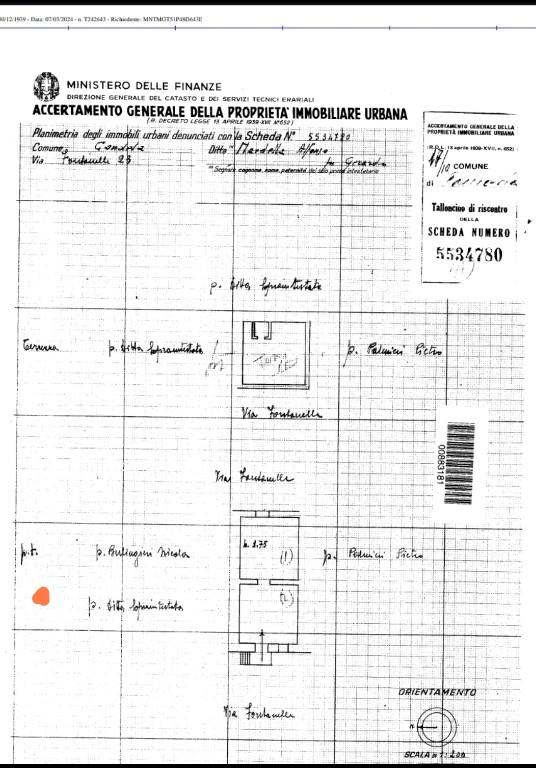 30/12/1939 - Data: 07/03/2024 - n. T242643 - Richiedente: MNTMGT51P48D643E
MINISTERO DELLE FINANZE
DIREZIONE GENERALE DEL CATASTO E DEI SERVIZI TECNICI ERARIALI
ACCERTAMENTO GENERALE DELLA PROPRIETÀ IMMOBILIARE URBANA
(R. DECRETO LEGGE 13 APRILE 1939-XVII N°652)
Planimetria degli immobili urbani denunciati con la Scheda N° 5534780
Comune
Ditta
Via Fontanelle 23
Segnare cognome, nome, paternità del solo primo intestatario
ACCERTAMENTO GENERALE DELLA
PROPRIETÀ IMMOBILIARE URBANA
(R.D.L. 13 aprile 1939-XVII, n. 652)
COMUNE
di
Talloncino di riscontro
DELLA
SCHEDA NUMERO
5534780
p. Ditta Sopraintestata
p. Ditta Sopraintestata
p. Palmieri Pietro
Via Fontanelle
00883181
Via Fontanelle
p.t.
Nicola
(1)
p. Palmieri Pietro
(2)
p. Ditta Sopraintestata
Via Fontanelle
ORIENTAMENTO
N
SCALA DI 1:200